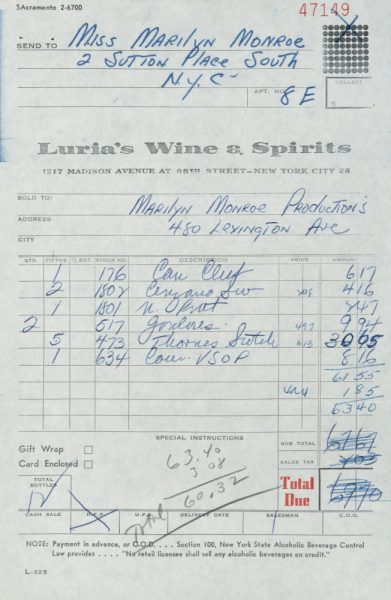 SAcramento 2-6700
47149
SEND TO Miss Marilyn Monroe
2 Sutton Place South
N.Y.C-
APT. NO. 8E
COLLECT
$
Luria's Wine & Spirits
1217 MADISON AVENUE AT 88TH STREET-NEW YORK CITY 28
SOLD TO: Marilyn Monroe Production's
ADDRESS 480 Lexington Ave
CITY
QTS. FIFTHS ½ BOT. STOCK NO. DESCRIPTION PRICE AMOUNT
1 176 617
2 1502 208 416
1 1501 447
2 517 Gordons 497 994
5 473 613 3065
1 634 Cour. VSOP 816
6155
185
6340
SPECIAL INSTRUCTIONS
Gift Wrap
Card Enclosed
63.40
3 08
60.32
Total
SUB TOTAL
SALES TAX
Total Due
TOTAL BOTTLES
12
CASH SALE DELIVERY DATE SALESMAN C.O.D.
NOTE: Payment in advance, or C.O.D. . . . Section 100, New York State Alcoholic Beverage Control
Law provides . . . . "No retail licensee shall sell any alcoholic beverages on credit."
L-325